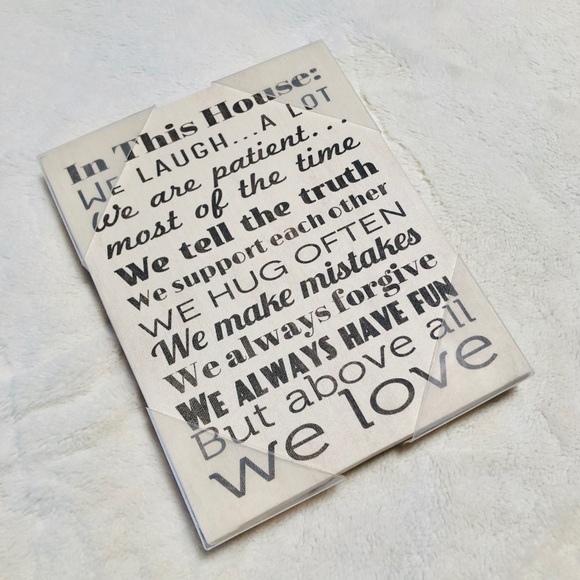 In This House:
WE LAUGH...A LOT
We are patient...
most of the time
We tell the truth
We support each other
WE HUG OFTEN
We make mistakes
We always forgive
WE ALWAYS HAVE FUN
But above all
we love